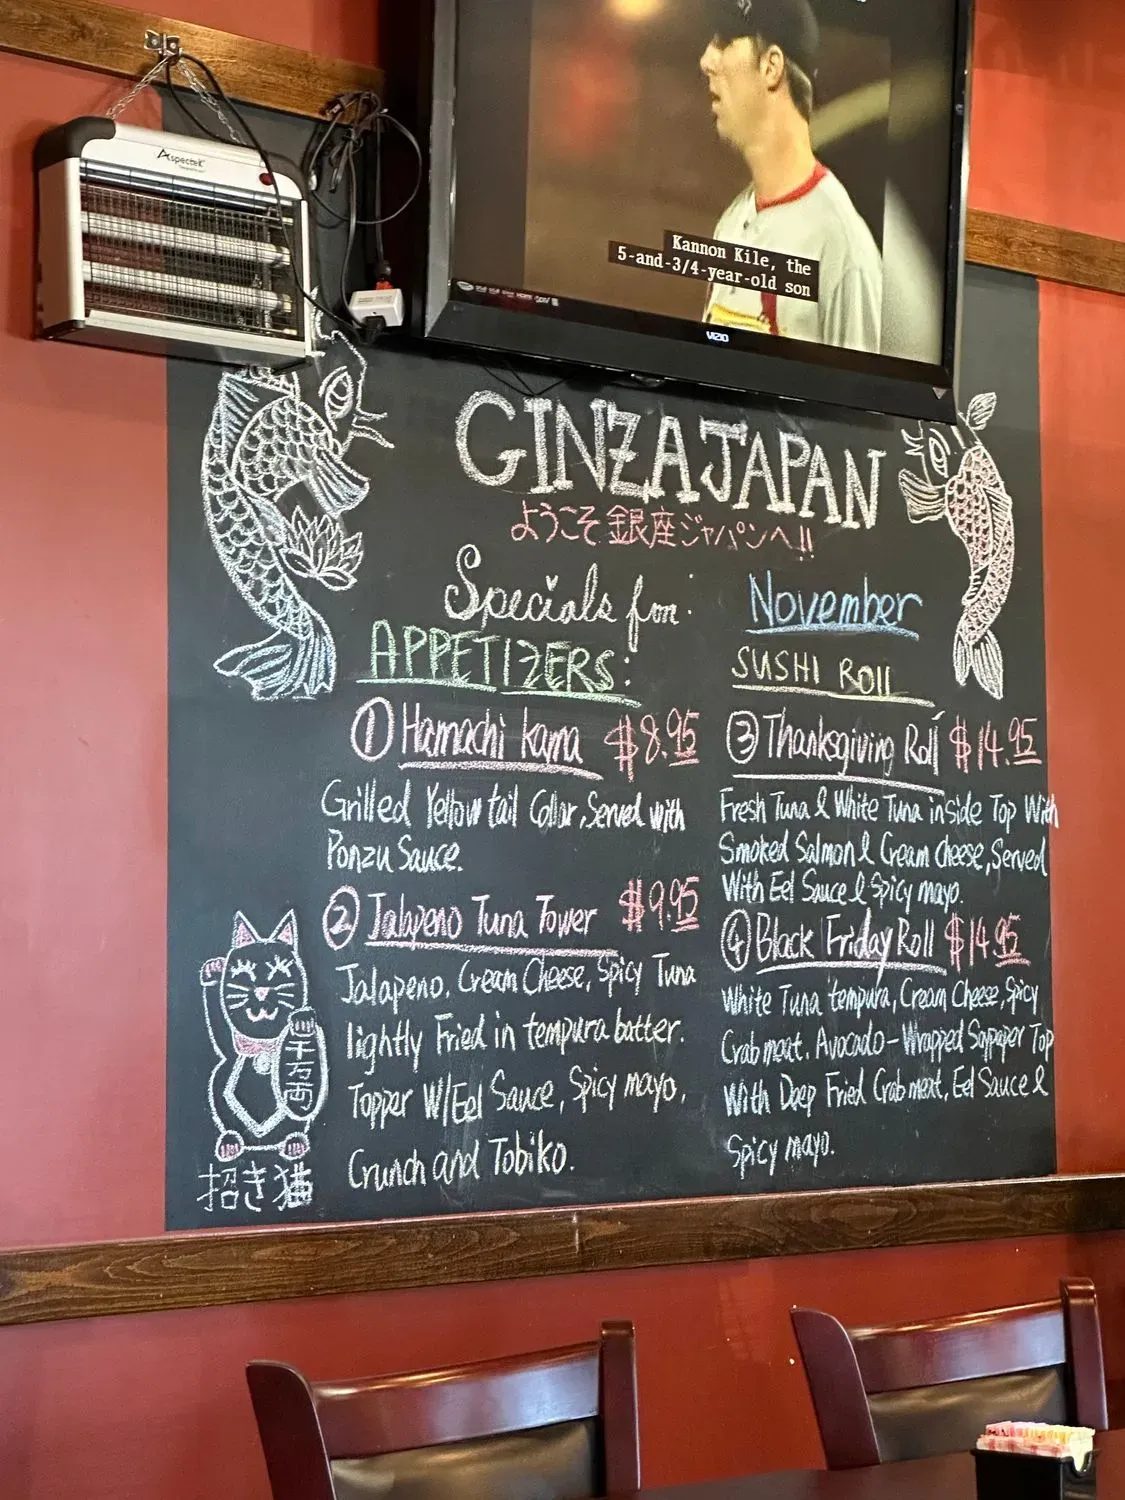 Aspectek
Kannon Kile, the
5-and-3/4-year-old son
VIZIO
GINZA JAPAN
ようこそ銀座ジャパンへ!!
Specials for:
November
APPETIZERS:
① Hamachi Kama $8.95
Grilled Yellow tail Collar, Served with
Ponzu Sauce.
② Jalapeno Tuna Tower $9.95
Jalapeno, Cream Cheese, Spicy Tuna
lightly Fried in tempura batter.
Topper W/Eel Sauce, Spicy mayo,
Crunch and Tobiko.
SUSHI Roll
③ Thanksgiving Roll $14.95
Fresh Tuna & White Tuna inside Top With
Smoked Salmon & Cream cheese, Served
With Eel Sauce & Spicy mayo.
④ Black Friday Roll $14.95
White Tuna tempura, Cream Cheese, Spicy
Crab meat, Avocado - Wrapped Soypaper Top
With Deep Fried Crab meat, Eel Sauce &
Spicy mayo.
千万両
招き猫